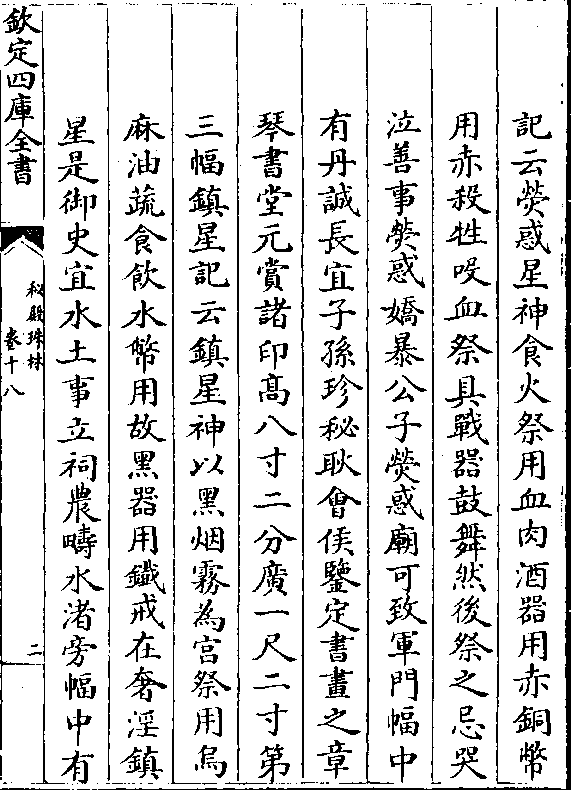 記云熒惑星神食火祭用血肉酒器用赤銅幣
用赤殺牲咬血祭具戰器鼓舞然後祭之忌哭
泣善事熒惑嬌暴公子熒惑廟可致軍門幅中
有丹誠長宜子孫珍秘耿會侯鑒定書畫之章
琴書堂元賞諸印高八寸二分廣一尺二寸第
三幅鎮星記云鎮星神以黑烟霧為宫祭用烏
麻油蔬食飲水幣用故黑器用鐵戒在奢淫鎮
星是御史宜水土事立祠農疇水渚旁幅中有
欽定四庫全書
秘殿珠林
卷十八
二